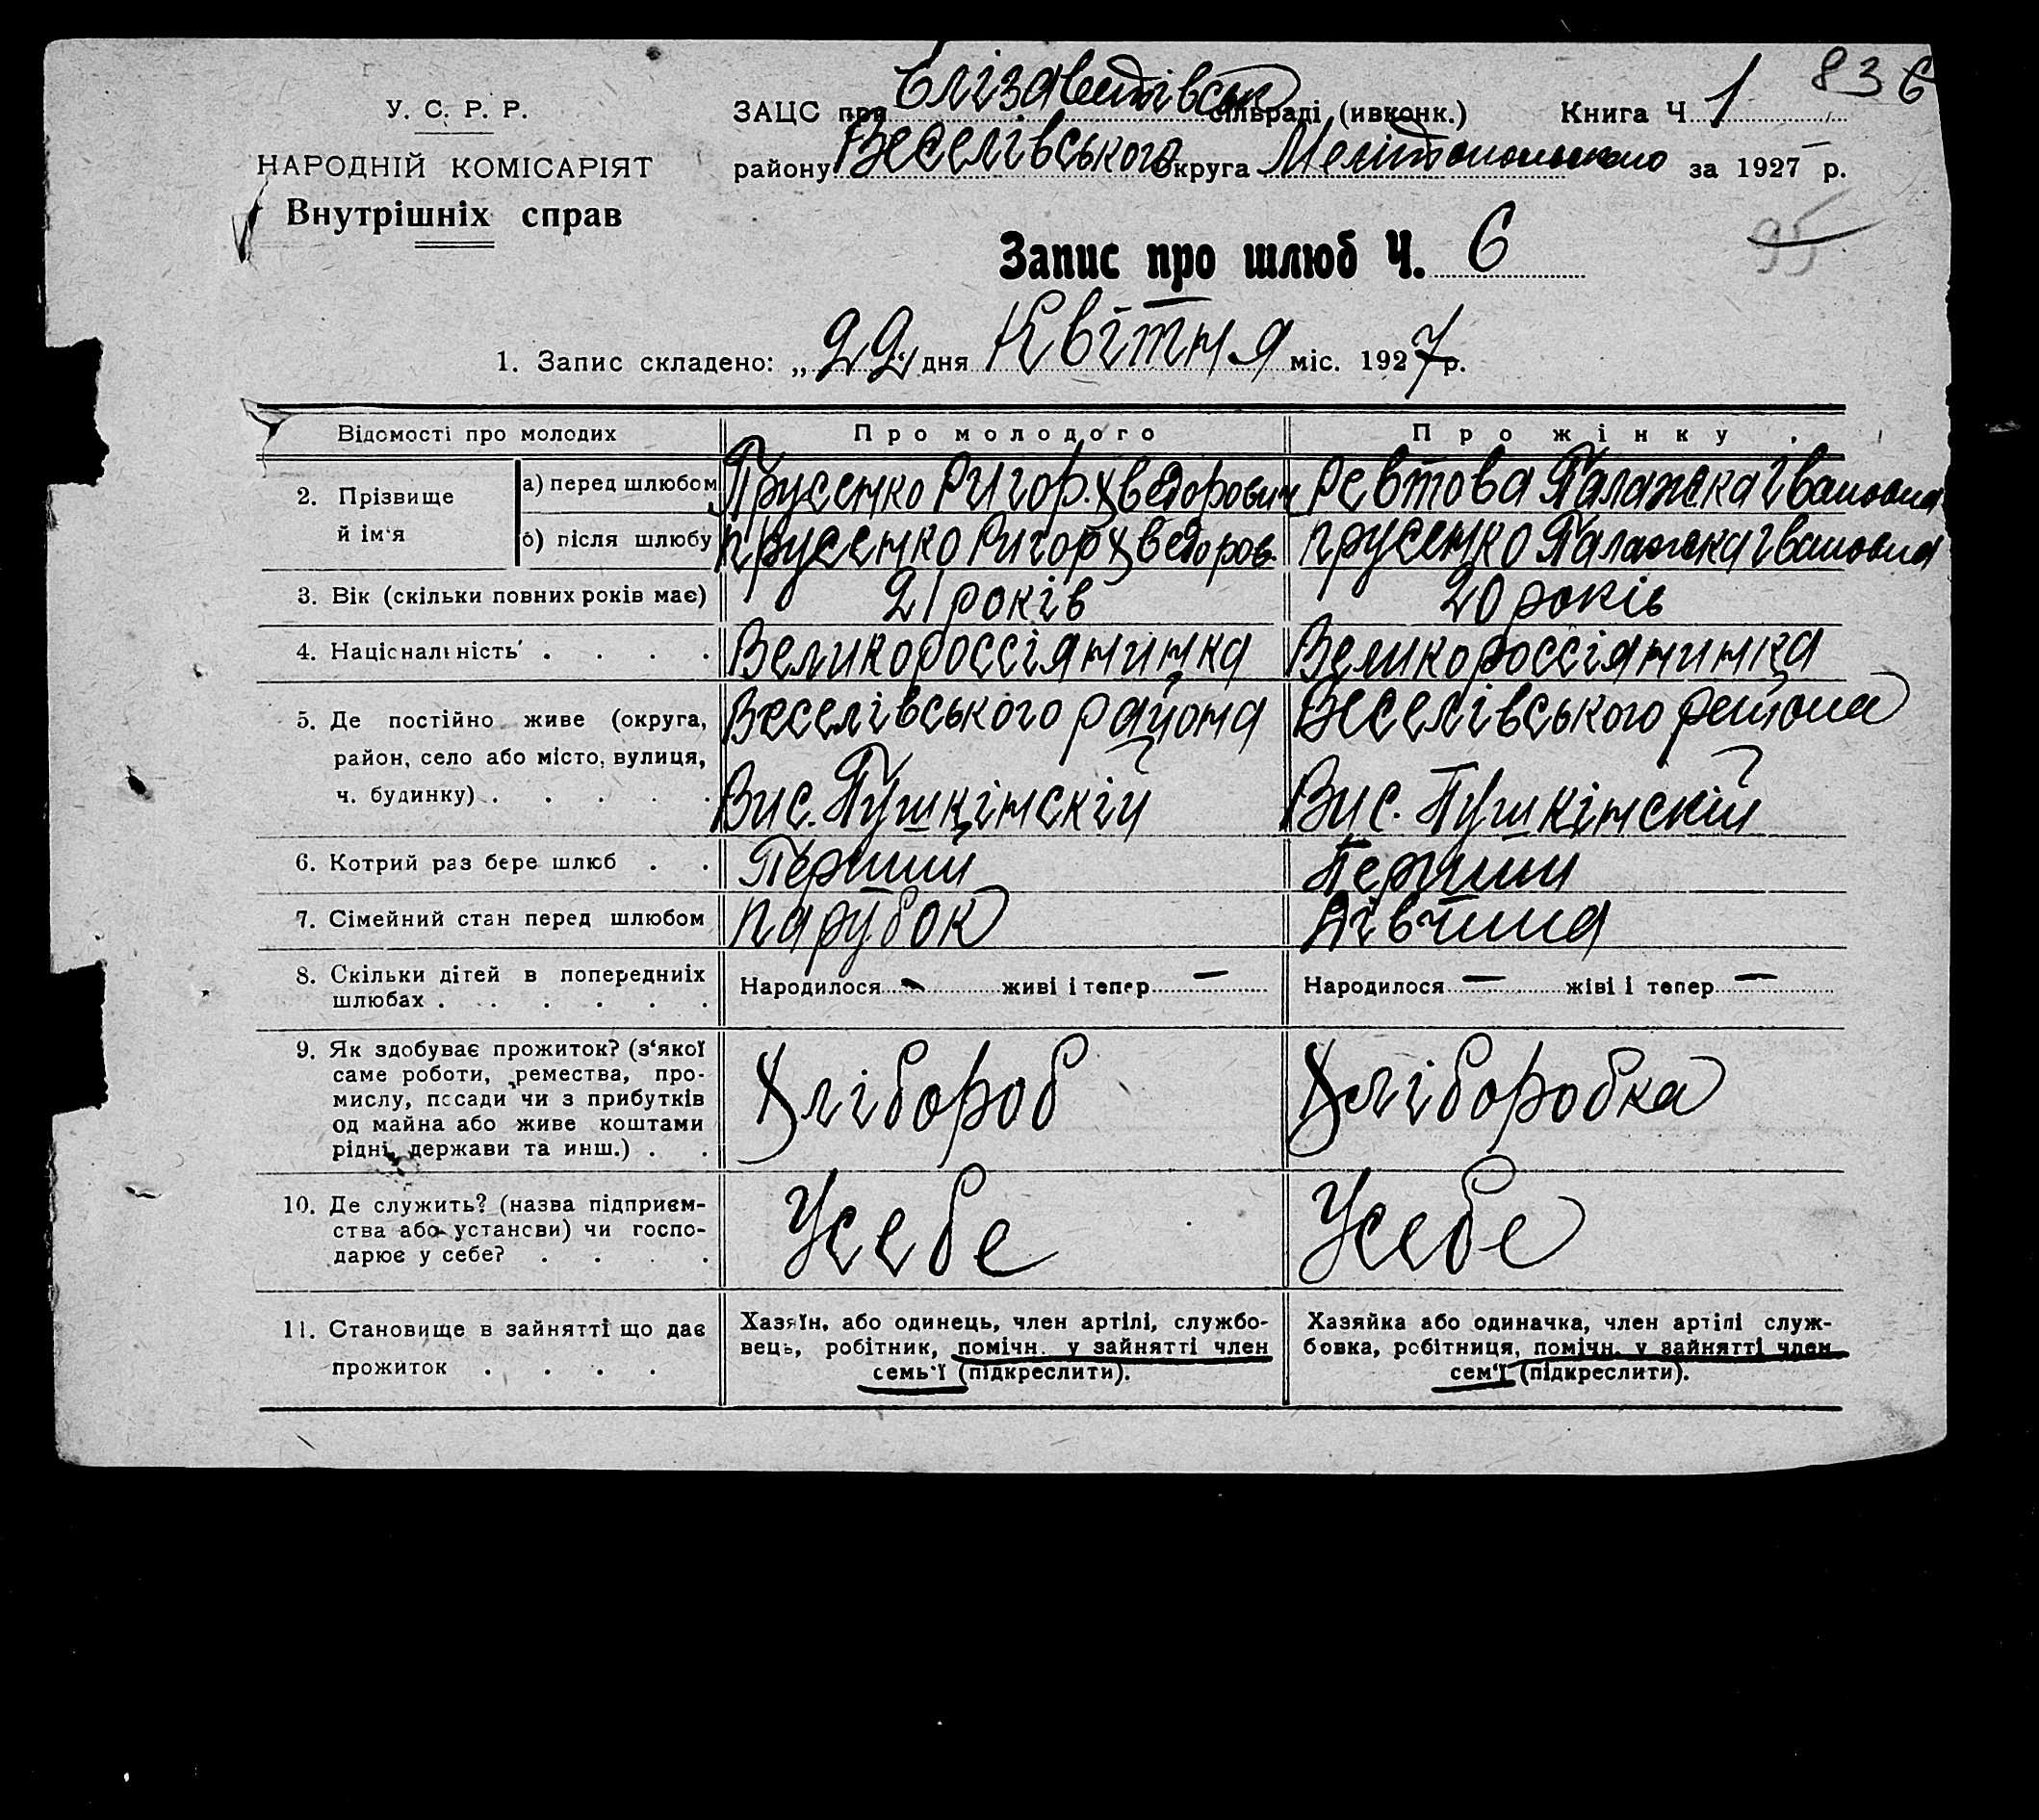 83 6
У. С. Р. Р.
НАРОДНІЙ КОМІСАРІЯТ
Внутрішніх справ
ЗАЦС при Єлізаветівськ сільраді (ивконк.) Книга Ч 1
району Веселівського Округа Мелітопольського за 1927 р.
95
Запис про шлюб Ч. 6
1. Запис складено: „22" дня Квітня міс. 1927 р.
Відомості про молодих
Про молодого
Про жінку
2. Прізвище й ім'я
а) перед шлюбом
Прусенко Ригор. Хведорович
Ревтова Палажка Івановна
б) після шлюбу
прусенко Ригор Хведоров.
прусенко Палажка Івановна
3. Вік (скільки повних років має)
21 років
20 років
4. Національність . . . .
Великороссіянинка
Великороссіянинка
5. Де постійно живе (округа,
район, село або місто, вулиця,
ч. будинку) . . . . .
Веселівського района
Вис. Пушкінскій
Веселівського района
Вис. Пушкінскій
6. Котрий раз бере шлюб . .
Перший
Перший
7. Сімейний стан перед шлюбом
парубок
Дівчина
8. Скільки дітей в попередниіх
шлюбах . . . . . .
Народилося — живі і тепер —
Народилося — жіві і тепер —
9. Як здобуває прожиток? (з'якої
саме роботи, ремества, про-
мислу, посади чи з прибутків
од майна або живе коштами
рідні, держави та инш.) . .
Хлібороб
Хліборобка
10. Де служить? (назва підприєм-
ства або установи) чи госпо-
дарює у себе? . . . .
Усебе
Усебе
11. Становище в зайнятті що дає
прожиток . . . .
Хазяїн, або одинець, член артілі, службо-
вець, робітник, помічн. у зайнятті член
семь'ї (підкреслити).
Хазяйка або одиначка, член артілі служ-
бовка, робітниця, помічн. у зайнятті член
сем'ї (підкреслити).